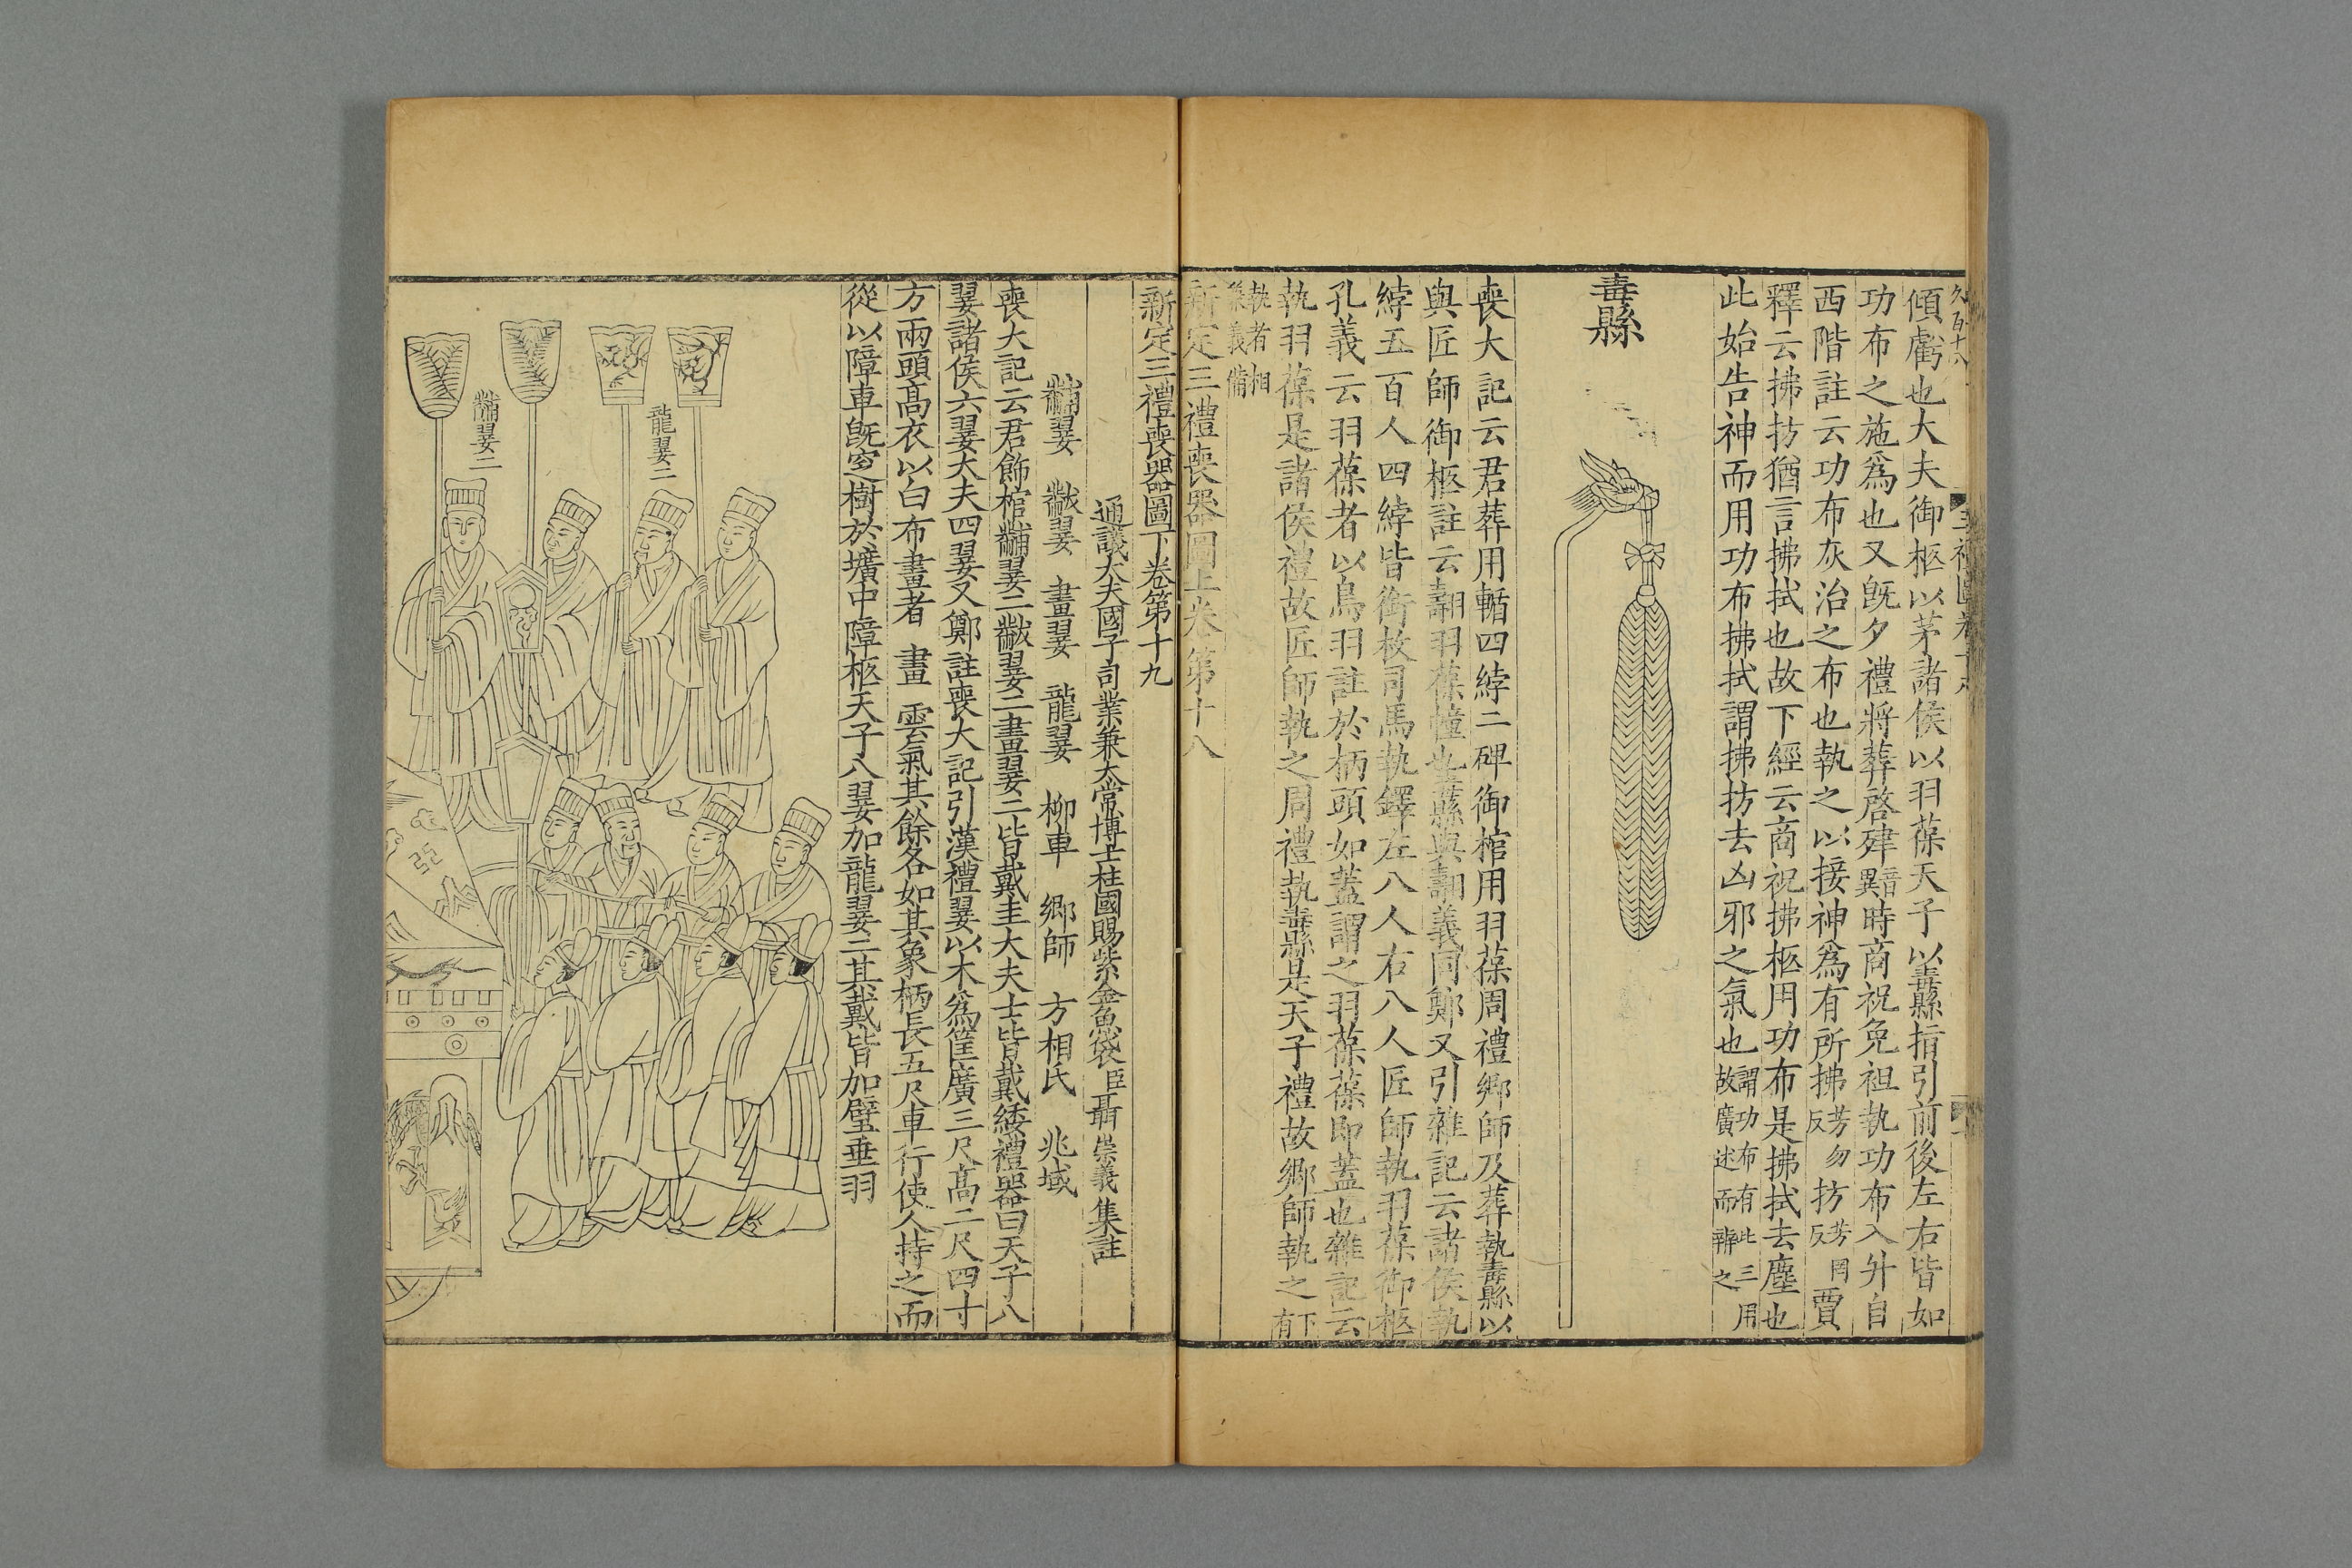 傾虧也大夫御柩以茅諸侯以羽葆天子以纛指引前後左右皆如
功布之施爲也又旣夕禮將葬啓肂時商祝免袒執功布入升自
西階註云功布灰治之布也執之以接神爲有所拂芳勿反抐芳罔反賈
釋云拂抐猶言拂拭也故下經云商祝拂柩用功布是拂拭去塵也
此始告神而用功布拂拭謂拂抐去凶邪之氣也謂功布有此三用故廣述而辨之
纛
喪大記云君葬用輴四綍二碑御棺用羽葆周禮鄉師及葬執纛以
與匠師御柩註云翿羽葆幢也纛與翿義同鄭又引雜記云諸侯執
綍五百人四綍皆銜枚司馬執鐸左八人右八人匠師執羽葆御柩
孔義云羽葆者以鳥羽註於柄頭如蓋謂之羽葆葆即蓋也雜記云
執羽葆是諸侯禮故匠師執之周禮執纛是天子禮故鄉師執之下有
執者相養義備
新定三禮喪器圖上卷第十八
新定三禮喪器圖下卷第十九
通議大夫國子司業兼太常博士柱國賜紫金魚袋臣聶崇義集註
黼翣 黻翣 畫翣 龍翣 柳車 鄉師 方相氏 兆域
喪大記云君飾棺黼翣二黻翣二畫翣二皆戴圭大夫士皆戴綏禮器曰天子八
翣諸侯六翣大夫四翣又鄭註喪大記引漢禮翣以木爲筐廣三尺高二尺四寸
方兩頭高衣以白布畫者畫雲氣其餘各如其象柄長五尺車行使人持之而
從以障車旣窆樹於壙中障柩天子八翣加龍翣二其戴皆加璧垂羽
龍翣二
黼翣二